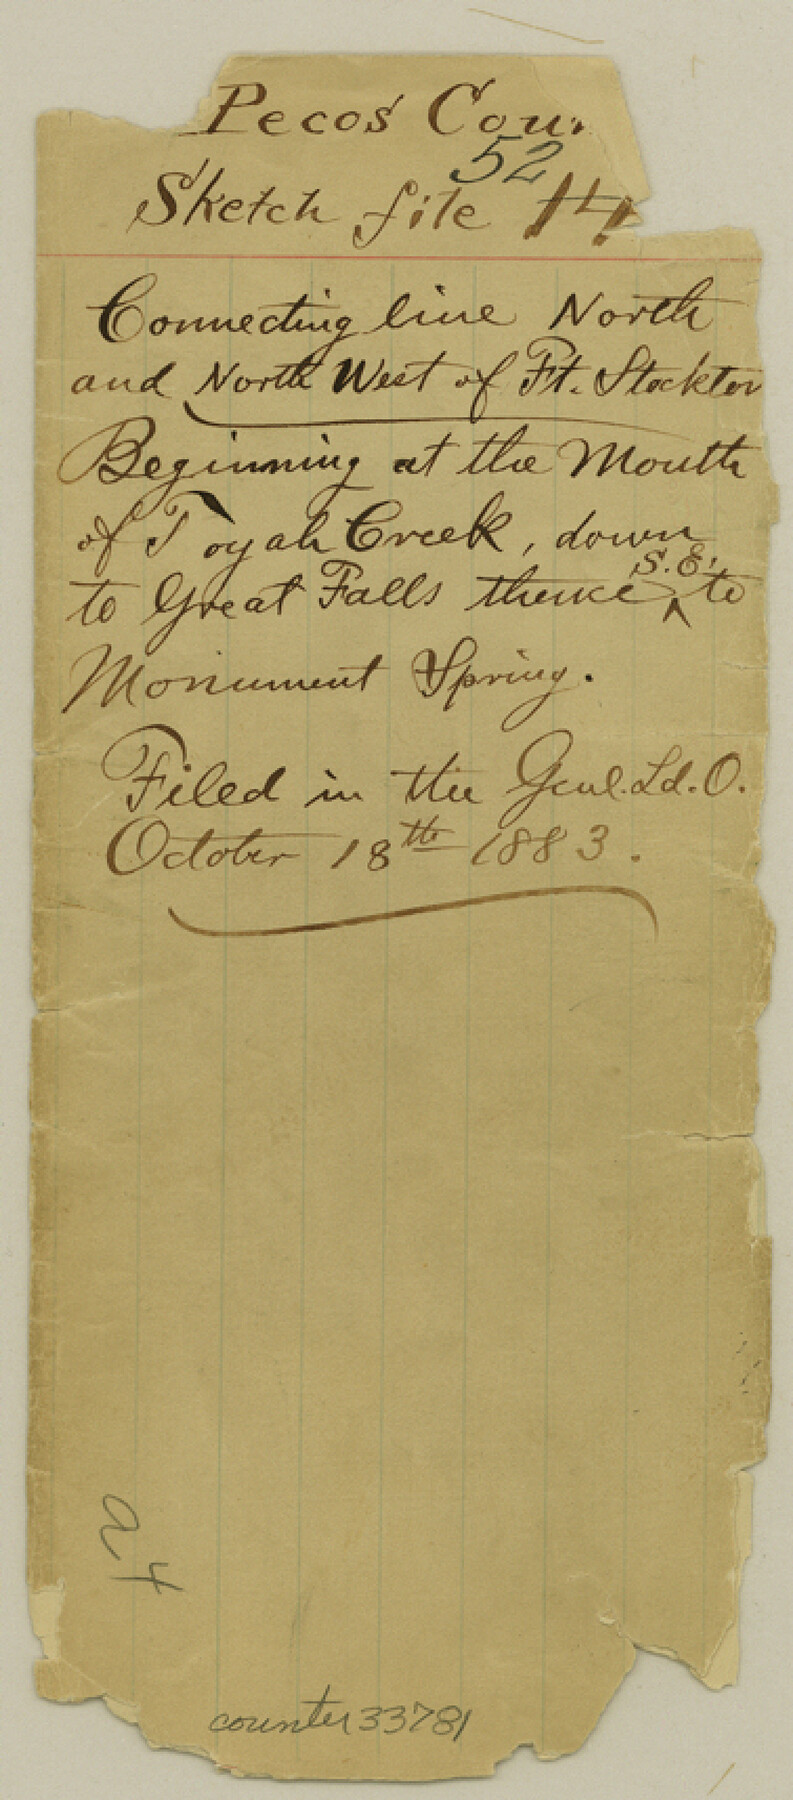 Pecos Coun
52
Sketch file 14
Connecting line North
and North West of Ft. Stockton
Beginning at the Mouth
of Toyah Creek, down
to Great Falls thence S.E. to
Monument Spring.
Filed in the Genl. Ld. O.
October 18th 1883.
counter 33781